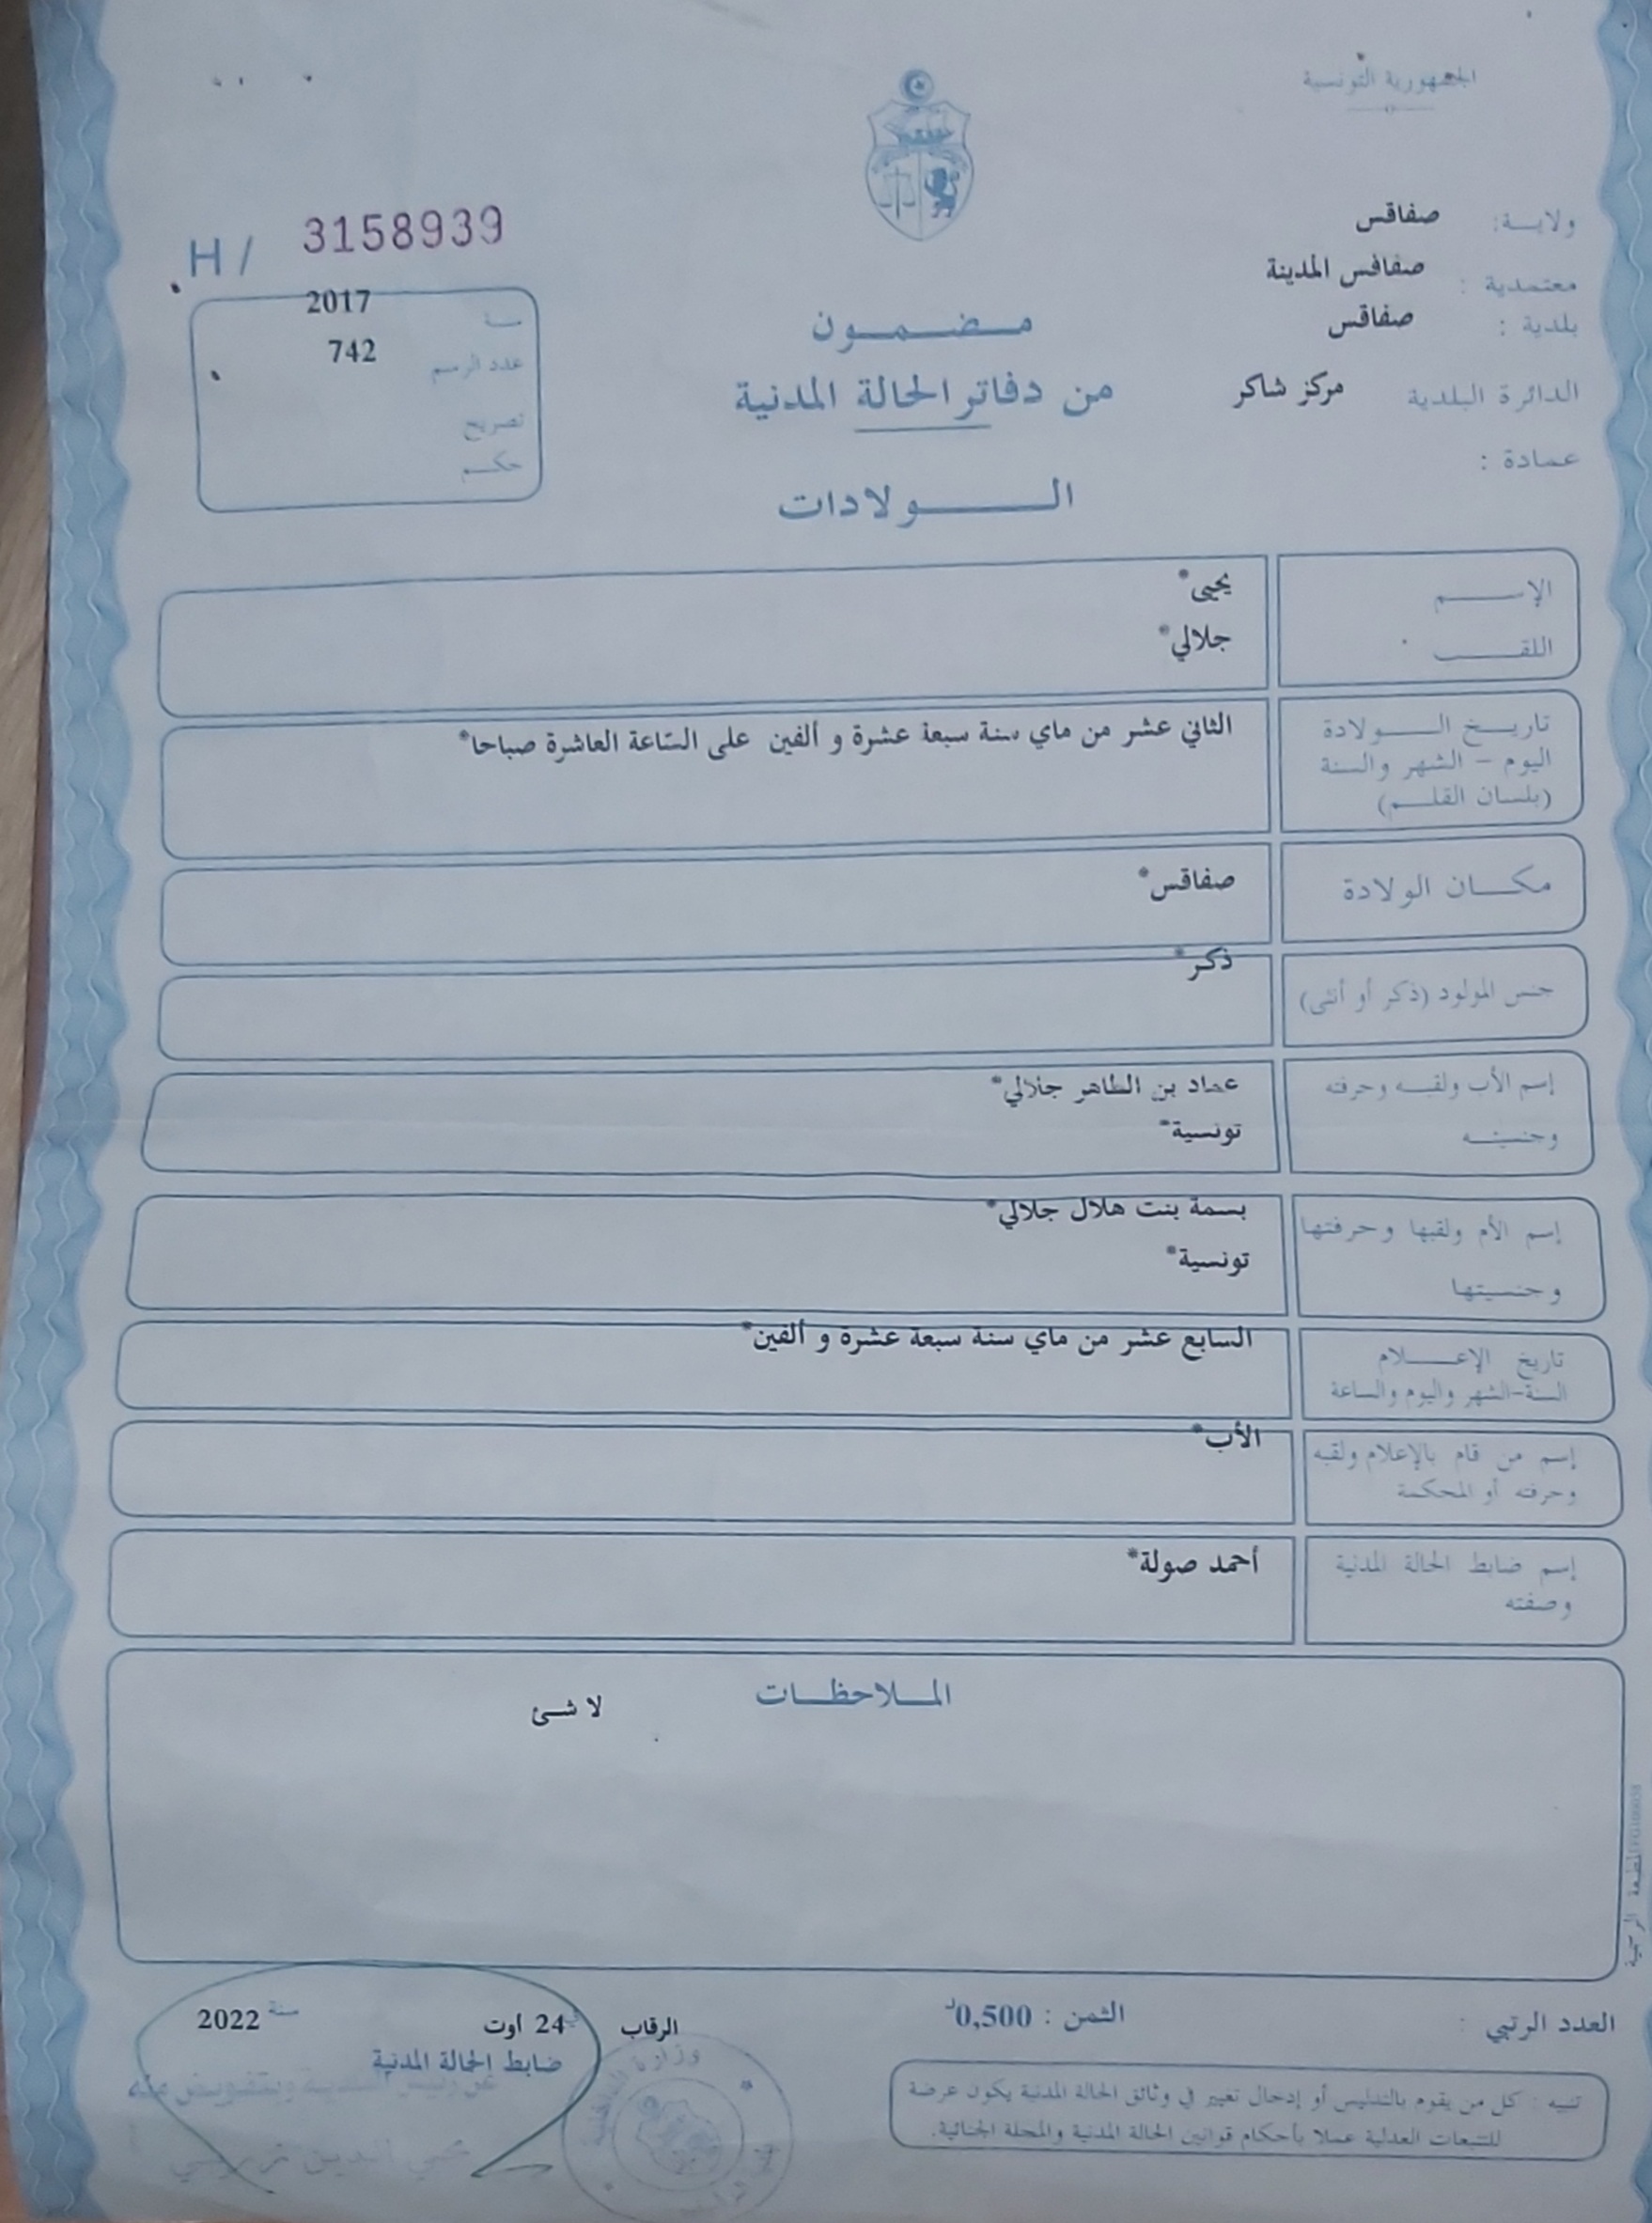 الجمهورية التونسية
ولايـة: صفاقس
معتمدية : صفاقس المدينة
بلدية : صفاقس
الدائرة البلدية مركز شاكر
عمادة :
H / 3158939
سنة 2017
عدد الرسم 742
تصريح
حكم
مضمون
من دفاتر الحالة المدنية
الولادات
الإسم يحيى*
اللقب جلالي*
تاريخ الولادة الثاني عشر من ماي سنة سبعة عشرة و ألفين على الساعة العاشرة صباحا*
اليوم - الشهر والسنة
(بلسان القلم)
مكان الولادة صفاقس*
جنس المولود (ذكر أو أنثى) ذكر*
إسم الأب ولقبه وحرفته عماد بن الطاهر جلالي*
وجنسيته تونسية*
إسم الأم ولقبها وحرفتها بسمة بنت هلال جلالي*
وجنسيتها تونسية*
تاريخ الإعلام السابع عشر من ماي سنة سبعة عشرة و ألفين*
السنة-الشهر واليوم والساعة
إسم من قام بالإعلام ولقبه الأب*
وحرفته أو المحكمة
إسم ضابط الحالة المدنية أحمد صولة*
وصفته
الملاحظات
لا شئ
المطبعة الرسمية
العدد الرتبي :
الثمن : 0,500د
الرقاب في 24 اوت سنة 2022
ضابط الحالة المدنية
عن رئيس البلدية وبتفويض منه
وزارة الداخلية
تنبيه : كل من يقوم بالتدليس أو إدخال تغيير في وثائق الحالة المدنية يكون عرضة
للتتبعات العدلية عملا بأحكام قوانين الحالة المدنية والمجلة الجنائية.